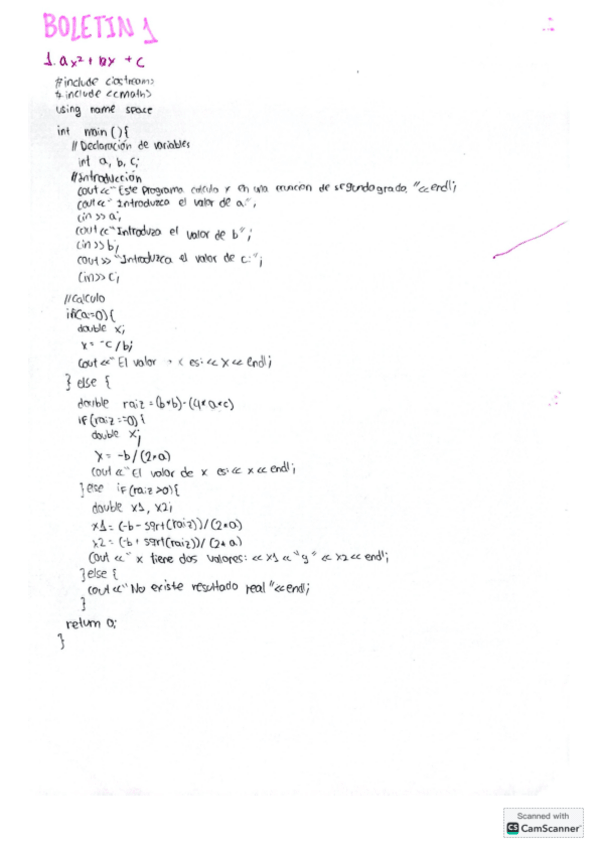 BOLETIN 1
1. ax² + bx + c
#include <iostream>
#include <cmath>
using name space
int main () {
// Declaración de variables
int a, b, c;
// Introducción
cout << "Este programa calcula x en una ecuación de segundo grado, "<< endl;
cout << "Introduzca el valor de a";
cin >> a;
cout << "Introduzca el valor de b";
cin >> b;
cout >> "Introduzca el valor de c:";
cin >> c;
// Calculo
if(a=0){
double x;
x = -c / b;
cout << " El valor es: << x << endl;
} else {
double raiz = (b*b) - (4*a*c)
if (raiz ==0) {
double x;
x = -b / (2*a)
cout << "El valor de x es: << x << endl;
} else if (raiz >0) {
double x1, x2;
x1 = (-b - sqrt(raiz)) / (2*a)
x2 = (-b + sqrt(raiz)) / (2*a)
cout << " x tiene dos valores: << x1 << "y" << x2 << endl;
} else {
cout << "No existe resultado real "<< endl;
}
return 0;
}
Scanned with
CS CamScanner